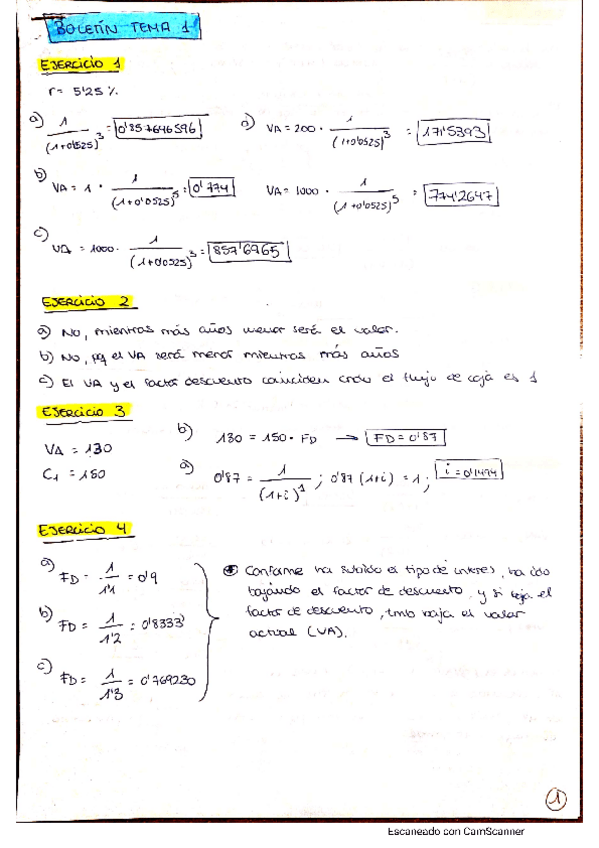 BOLETÍN TEMA 1
EJERCICIO 1
r= 5'25 %.
a) 1 / (1+0'0525)^3 = 0'857646596
b) VA = 1 · 1 / (1+0'0525)^5 = 0'774
c) VA = 1000 · 1 / (1+0'0525)^3 = 857'6765
d) VA = 200 · 1 / (1+0'0525)^3 = 171'5393
VA = 1000 · 1 / (1+0'0525)^5 = 774'2647
EJERCICIO 2
a) No, mientras más años menor será el valor.
b) No, pq el VA será menor mientras más años
c) El VA y el factor descuento coinciden cndo el flujo de caja es 1
EJERCICIO 3
VA = 130
C1 = 150
b) 130 = 150 · FD → FD = 0'87
a) 0'87 = 1 / (1+i)^1 ; 0'87 (1+i) = 1 ; i = 0'1494
EJERCICIO 4
a) FD = 1 / 1'1 = 0'9
b) FD = 1 / 1'2 = 0'8333
c) FD = 1 / 1'3 = 0'769230
Conforme ha subido el tipo de interes, ha ido
bajando el factor de descuento, y si baja el
factor de descuento, tmb baja el valor
actual (VA).
1
Escaneado con CamScanner